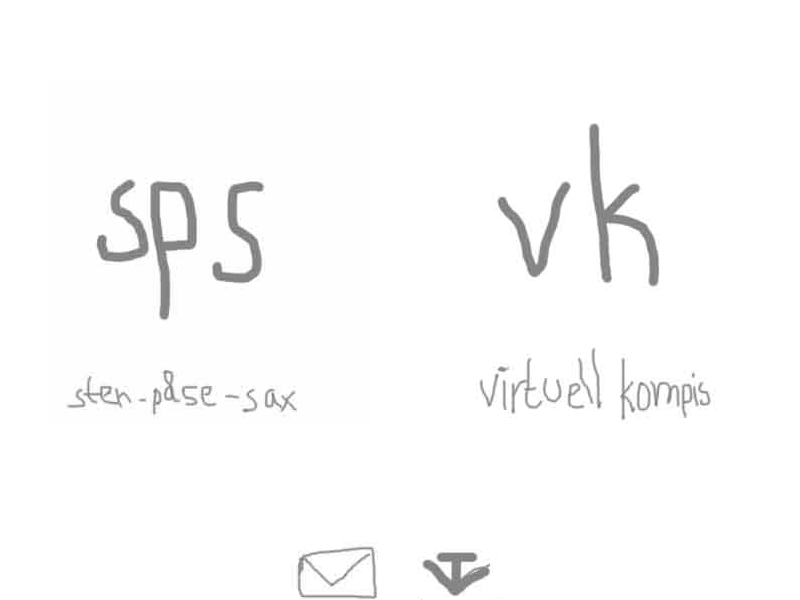 sps
vk
sten-påse-sax
virtuell kompis